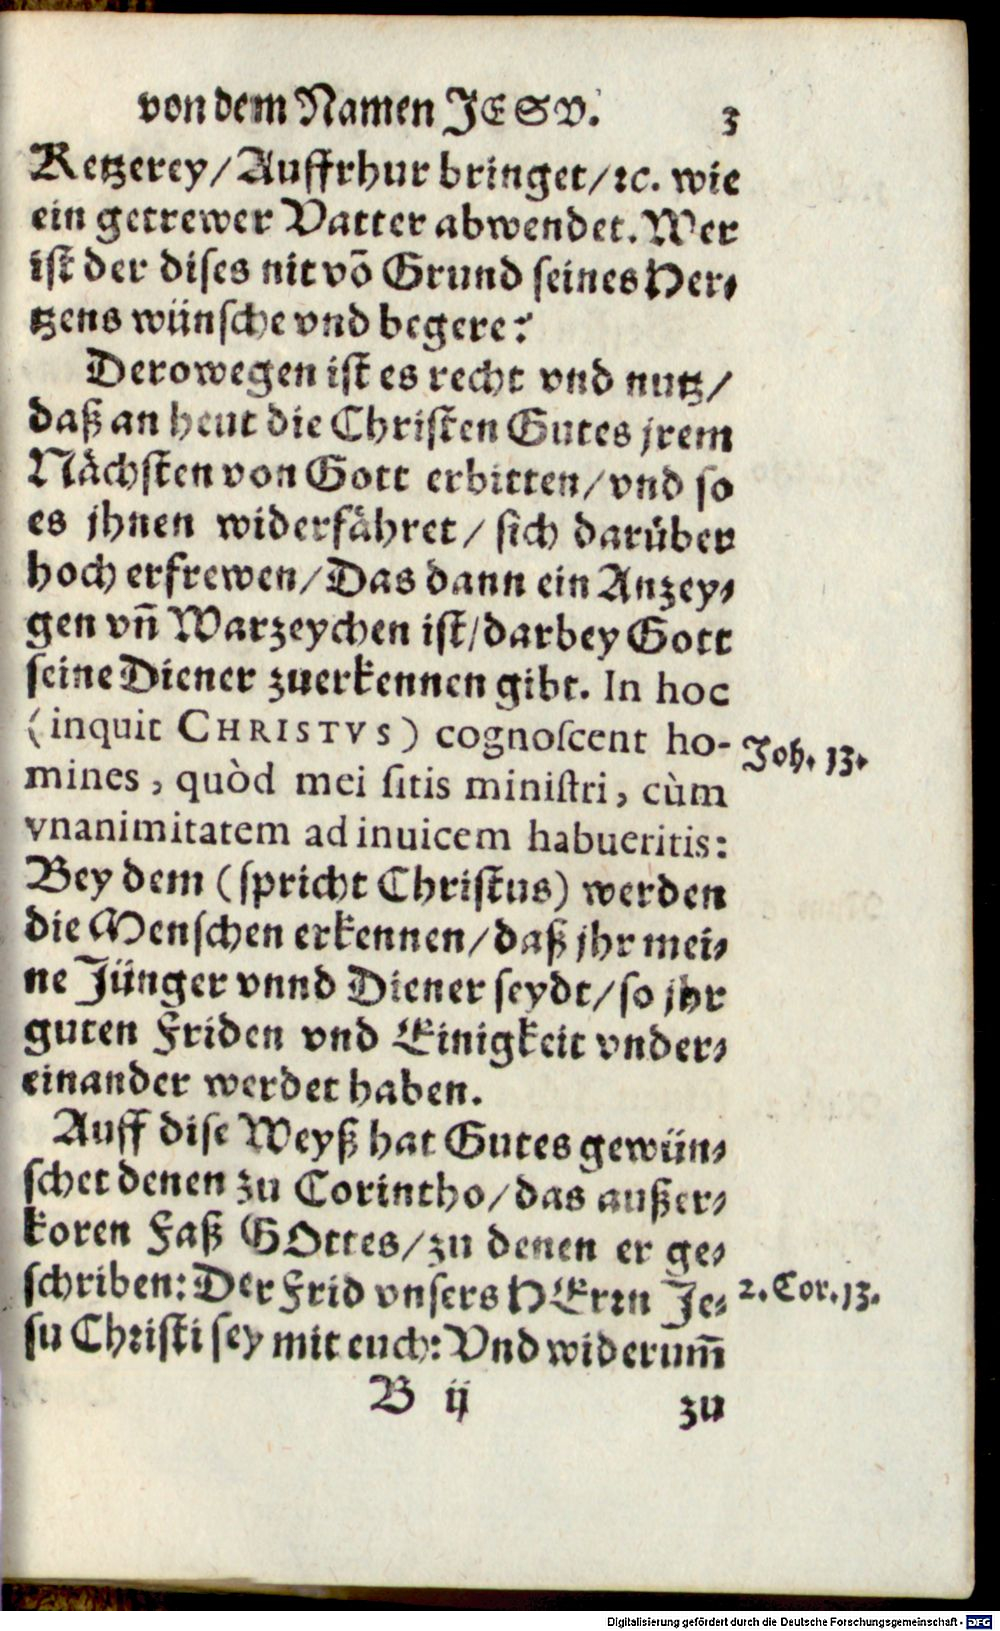 von dem Namen JESV. 3
Ketzerey/Auffrhur bringet/ꝛc. wie
ein getrewer Vatter abwendet. Wer
ist der dises nit võ Grund seines Her⸗
tzens wünsche vnd begere?
Derowegen ist es recht vnd nutz/
daß an heut die Christen Gutes jrem
Nächsten von Gott erbitten/vnd so
es jhnen widerfähret/ sich darüber
hoch erfrewen/Das dann ein Anzey⸗
gen vñ Warzeychen ist/darbey Gott
seine Diener zuerkennen gibt. In hoc
(inquit CHRISTVS) cognoſcent ho-
Joh. 13.
mines, quòd mei ſitis miniſtri, cùm
vnanimitatem ad inuicem habueritis:
Bey dem (spricht Christus) werden
die Menschen erkennen/daß jhr mei⸗
ne Jünger vnnd Diener seydt/so jhr
guten Friden vnd Einigkeit vnder⸗
einander werdet haben.
Auff dise Weyß hat Gutes gewün⸗
schet denen zu Corintho/das außer⸗
koren Faß GOttes/zu denen er ge⸗
schriben: Der Frid vnsers HErꝛn Je⸗
2. Cor. 13.
su Christi sey mit euch: Vnd widerum̃
B ij zu
Digitalisierung gefördert durch die Deutsche Forschungsgemeinschaft - DFG